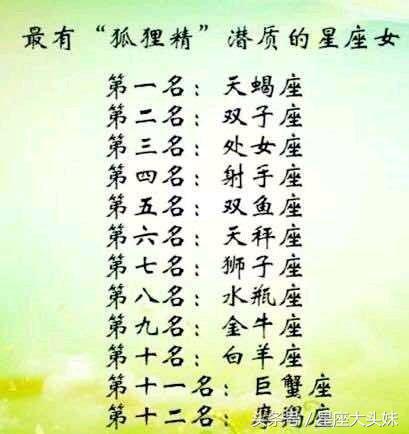 最有“狐狸精”潜质的星座女
第一名：天蝎座
第二名：双子座
第三名：处女座
第四名：射手座
第五名：双鱼座
第六名：天秤座
第七名：狮子座
第八名：水瓶座
第九名：金牛座
第十名：白羊座
第十一名：巨蟹座
第十二名：摩羯座
头条号/星座大头妹